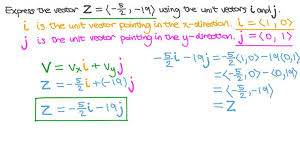 Express the vector Z = ⟨-5/2, -19⟩ using the unit vectors i and j.
i is the unit vector pointing in the x-direction. i = ⟨1, 0⟩
j is the unit vector pointing in the y-direction. j = ⟨0, 1⟩
V = vₓi + vᵧj
Z = -5/2 i + (-19)j
Z = -5/2 i - 19j
-5/2 i - 19j = -5/2⟨1, 0⟩ - 19⟨0, 1⟩
= ⟨-5/2, 0⟩ - ⟨0, 19⟩
= ⟨-5/2, -19⟩
= Z